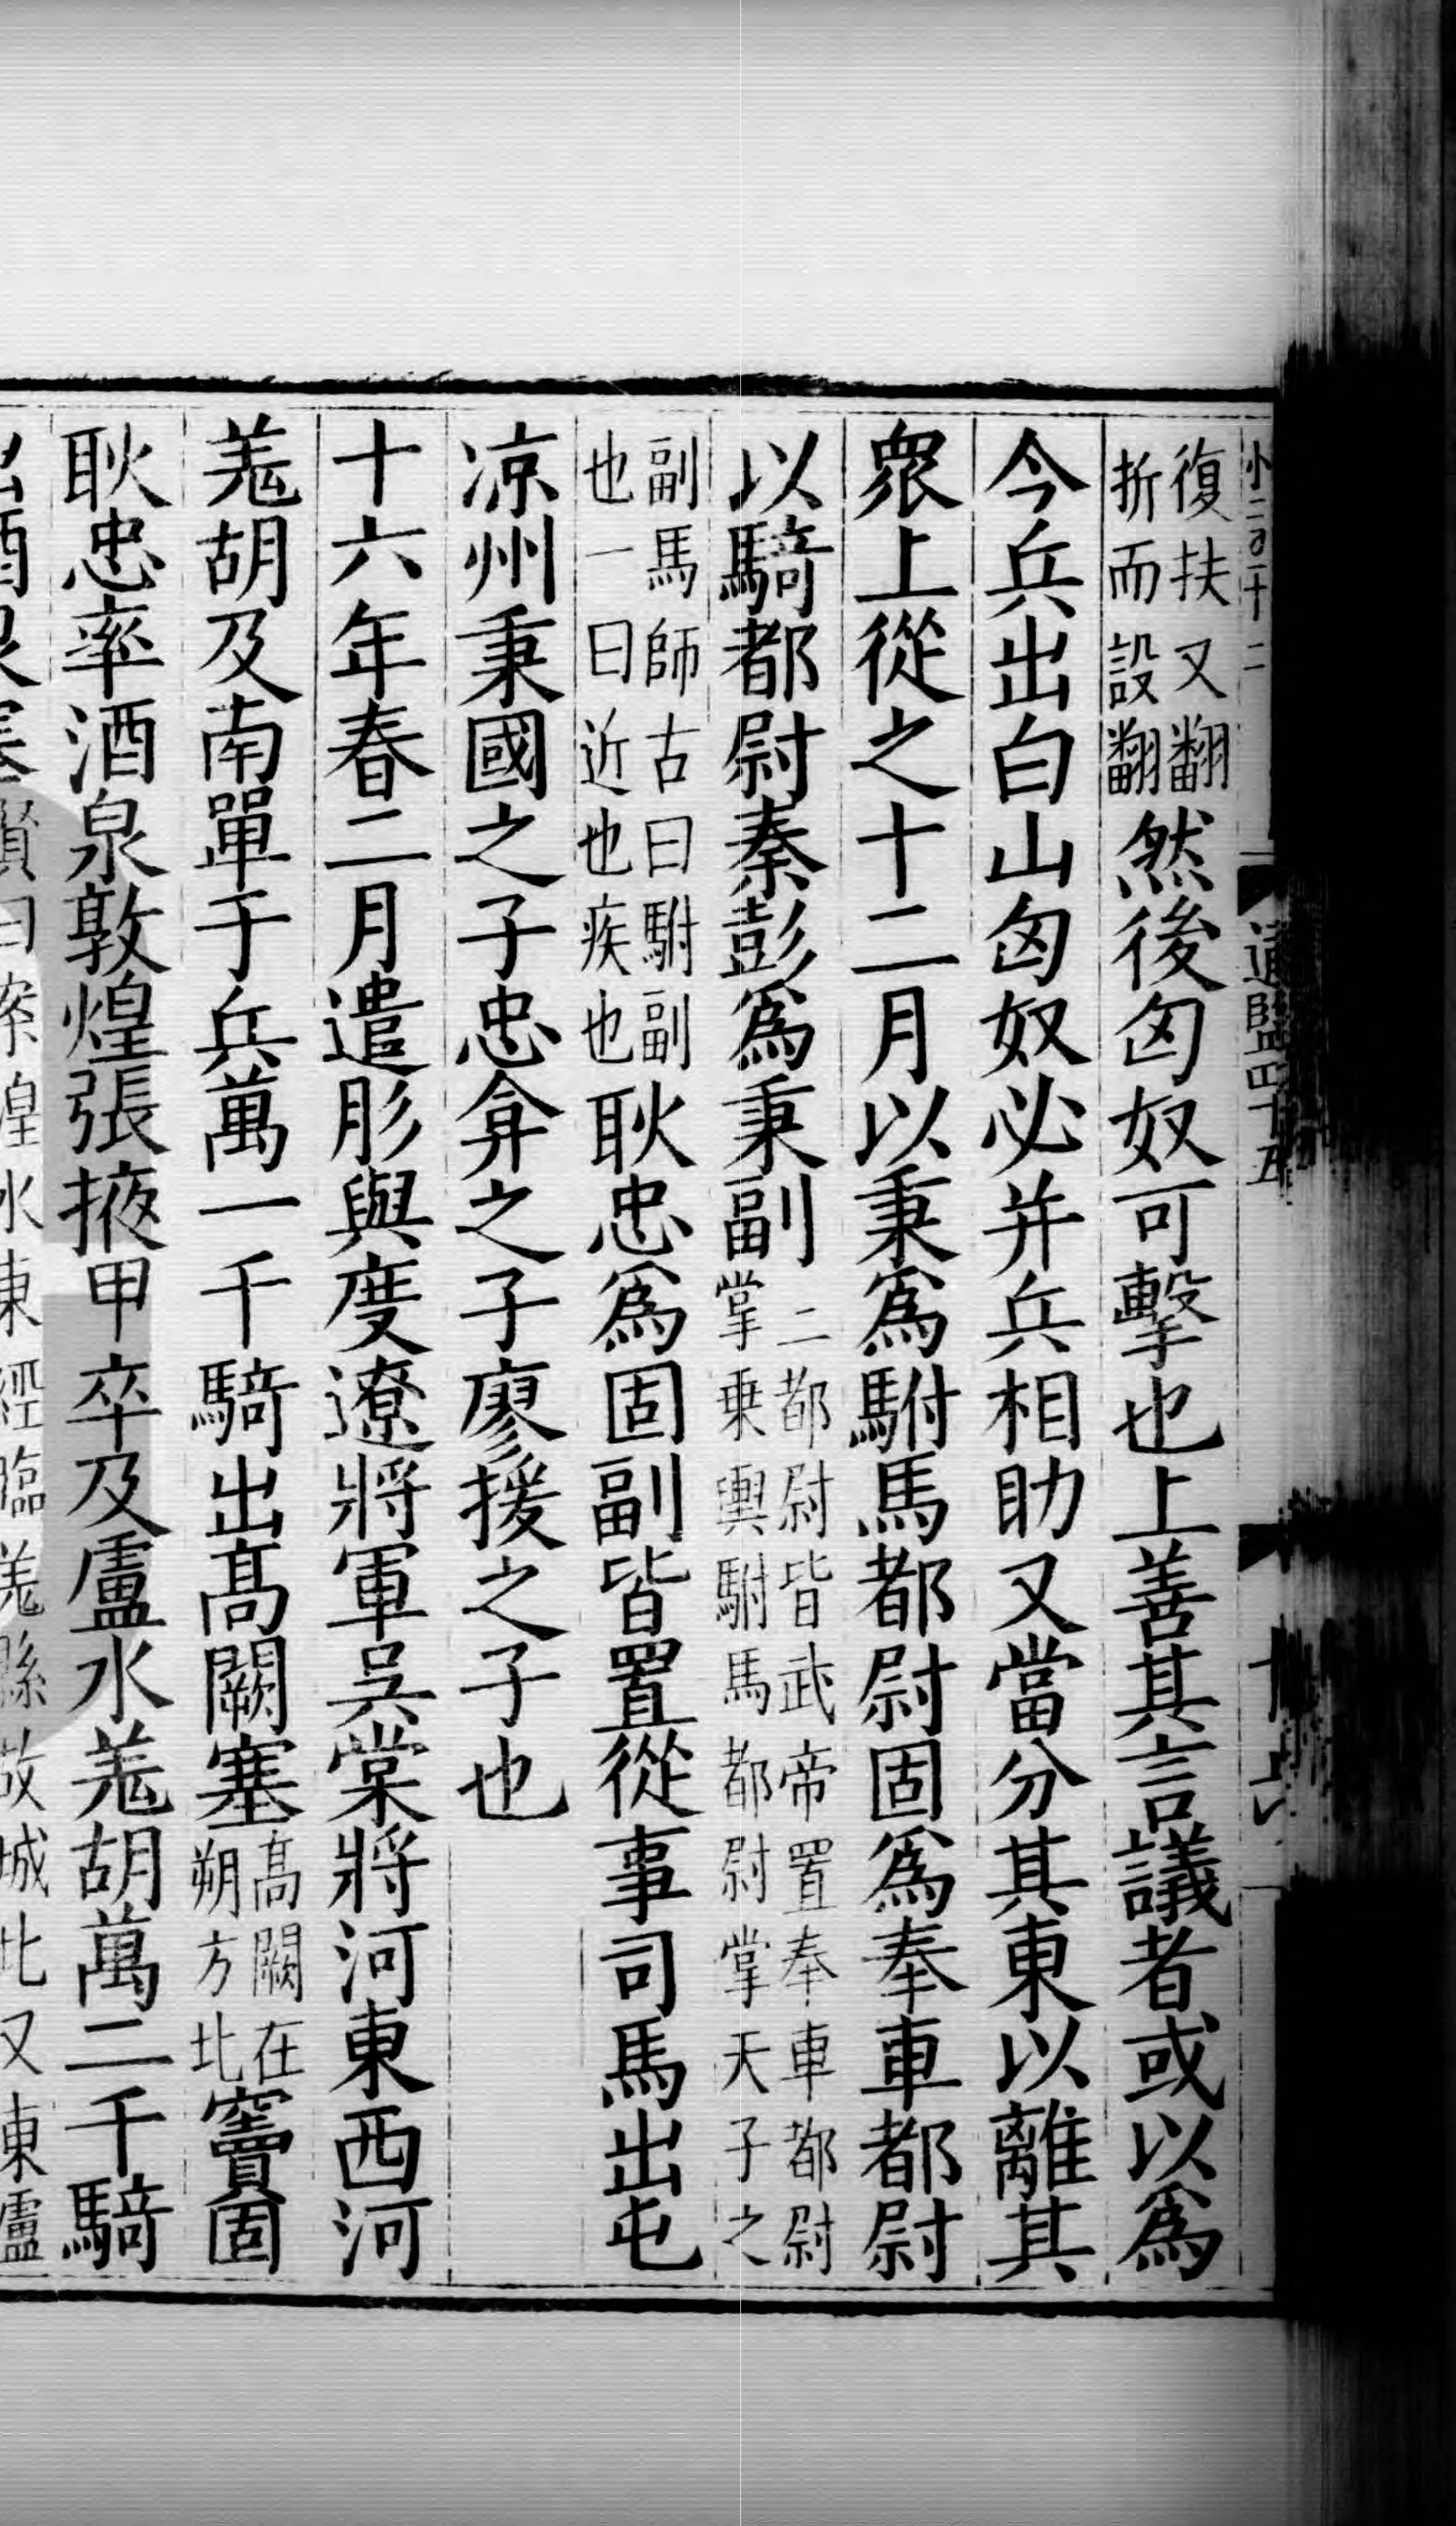 小二百二十二
通鑑四十五
十六
復扶又翻
折而設翻
然後匈奴可擊也上善其言議者或以爲
今兵出白山匈奴必并兵相助又當分其東以離其
衆上從之十二月以秉爲駙馬都尉固爲奉車都尉
以騎都尉秦彭爲秉副
二都尉皆武帝置奉車都尉
掌乗輿駙馬都尉掌天子之
副馬師古曰駙副
也一曰近也疾也
耿忠爲固副皆置從事司馬出屯
凉州秉國之子忠弇之子廖援之子也
十六年春二月遣肜與度遼將軍吴棠將河東西河
羗胡及南單于兵萬一千騎出髙闕塞
髙闕在
朔方北
竇固
耿忠率酒泉敦煌張掖甲卒及盧水羗胡萬二千騎
出酒泉塞
賢曰案湟水東經臨羗縣故城北又東盧